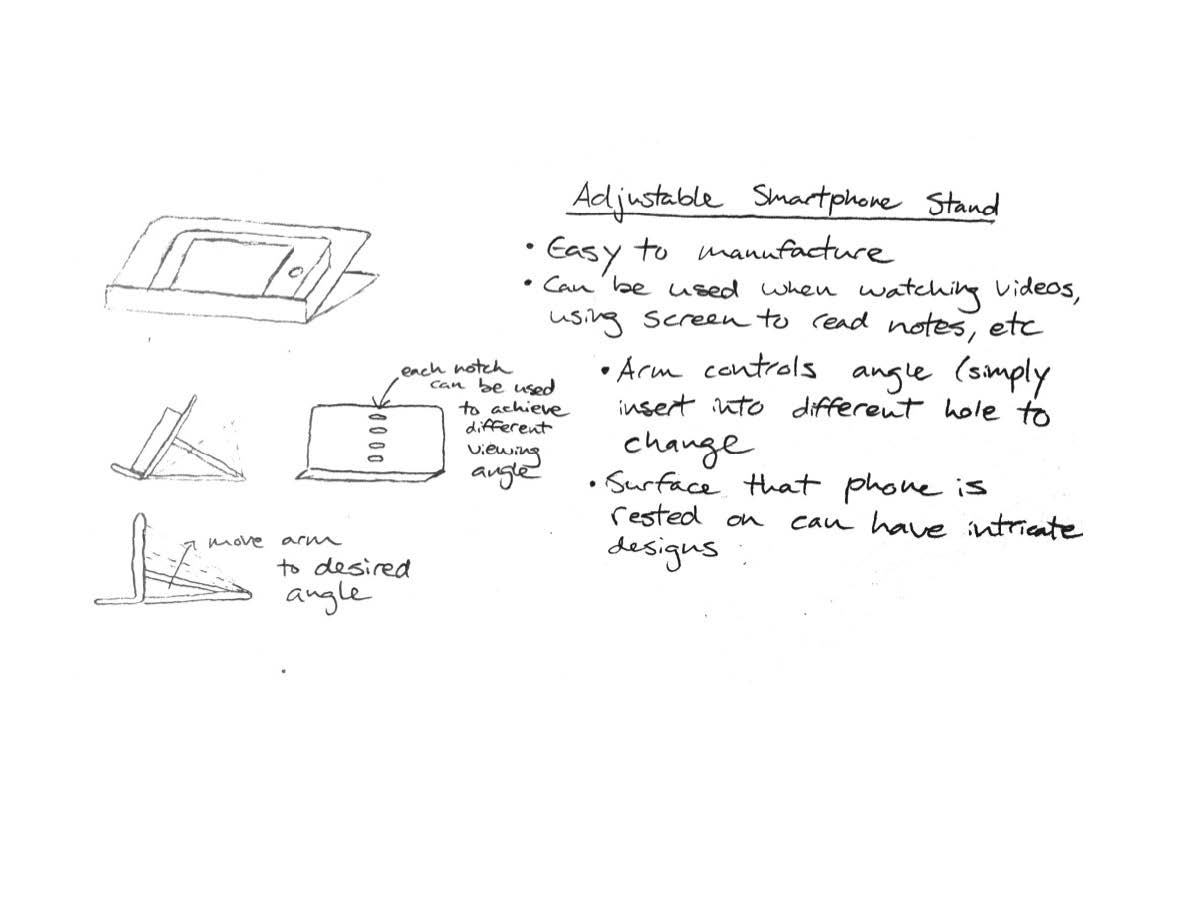 Adjustable Smartphone Stand
• Easy to manufacture
• Can be used when watching videos,
using screen to read notes, etc
• Arm controls angle (simply
insert into different hole to
change
• Surface that phone is
rested on can have intricate
designs
each notch
can be used
to achieve
different
viewing
angle
move arm
to desired
angle